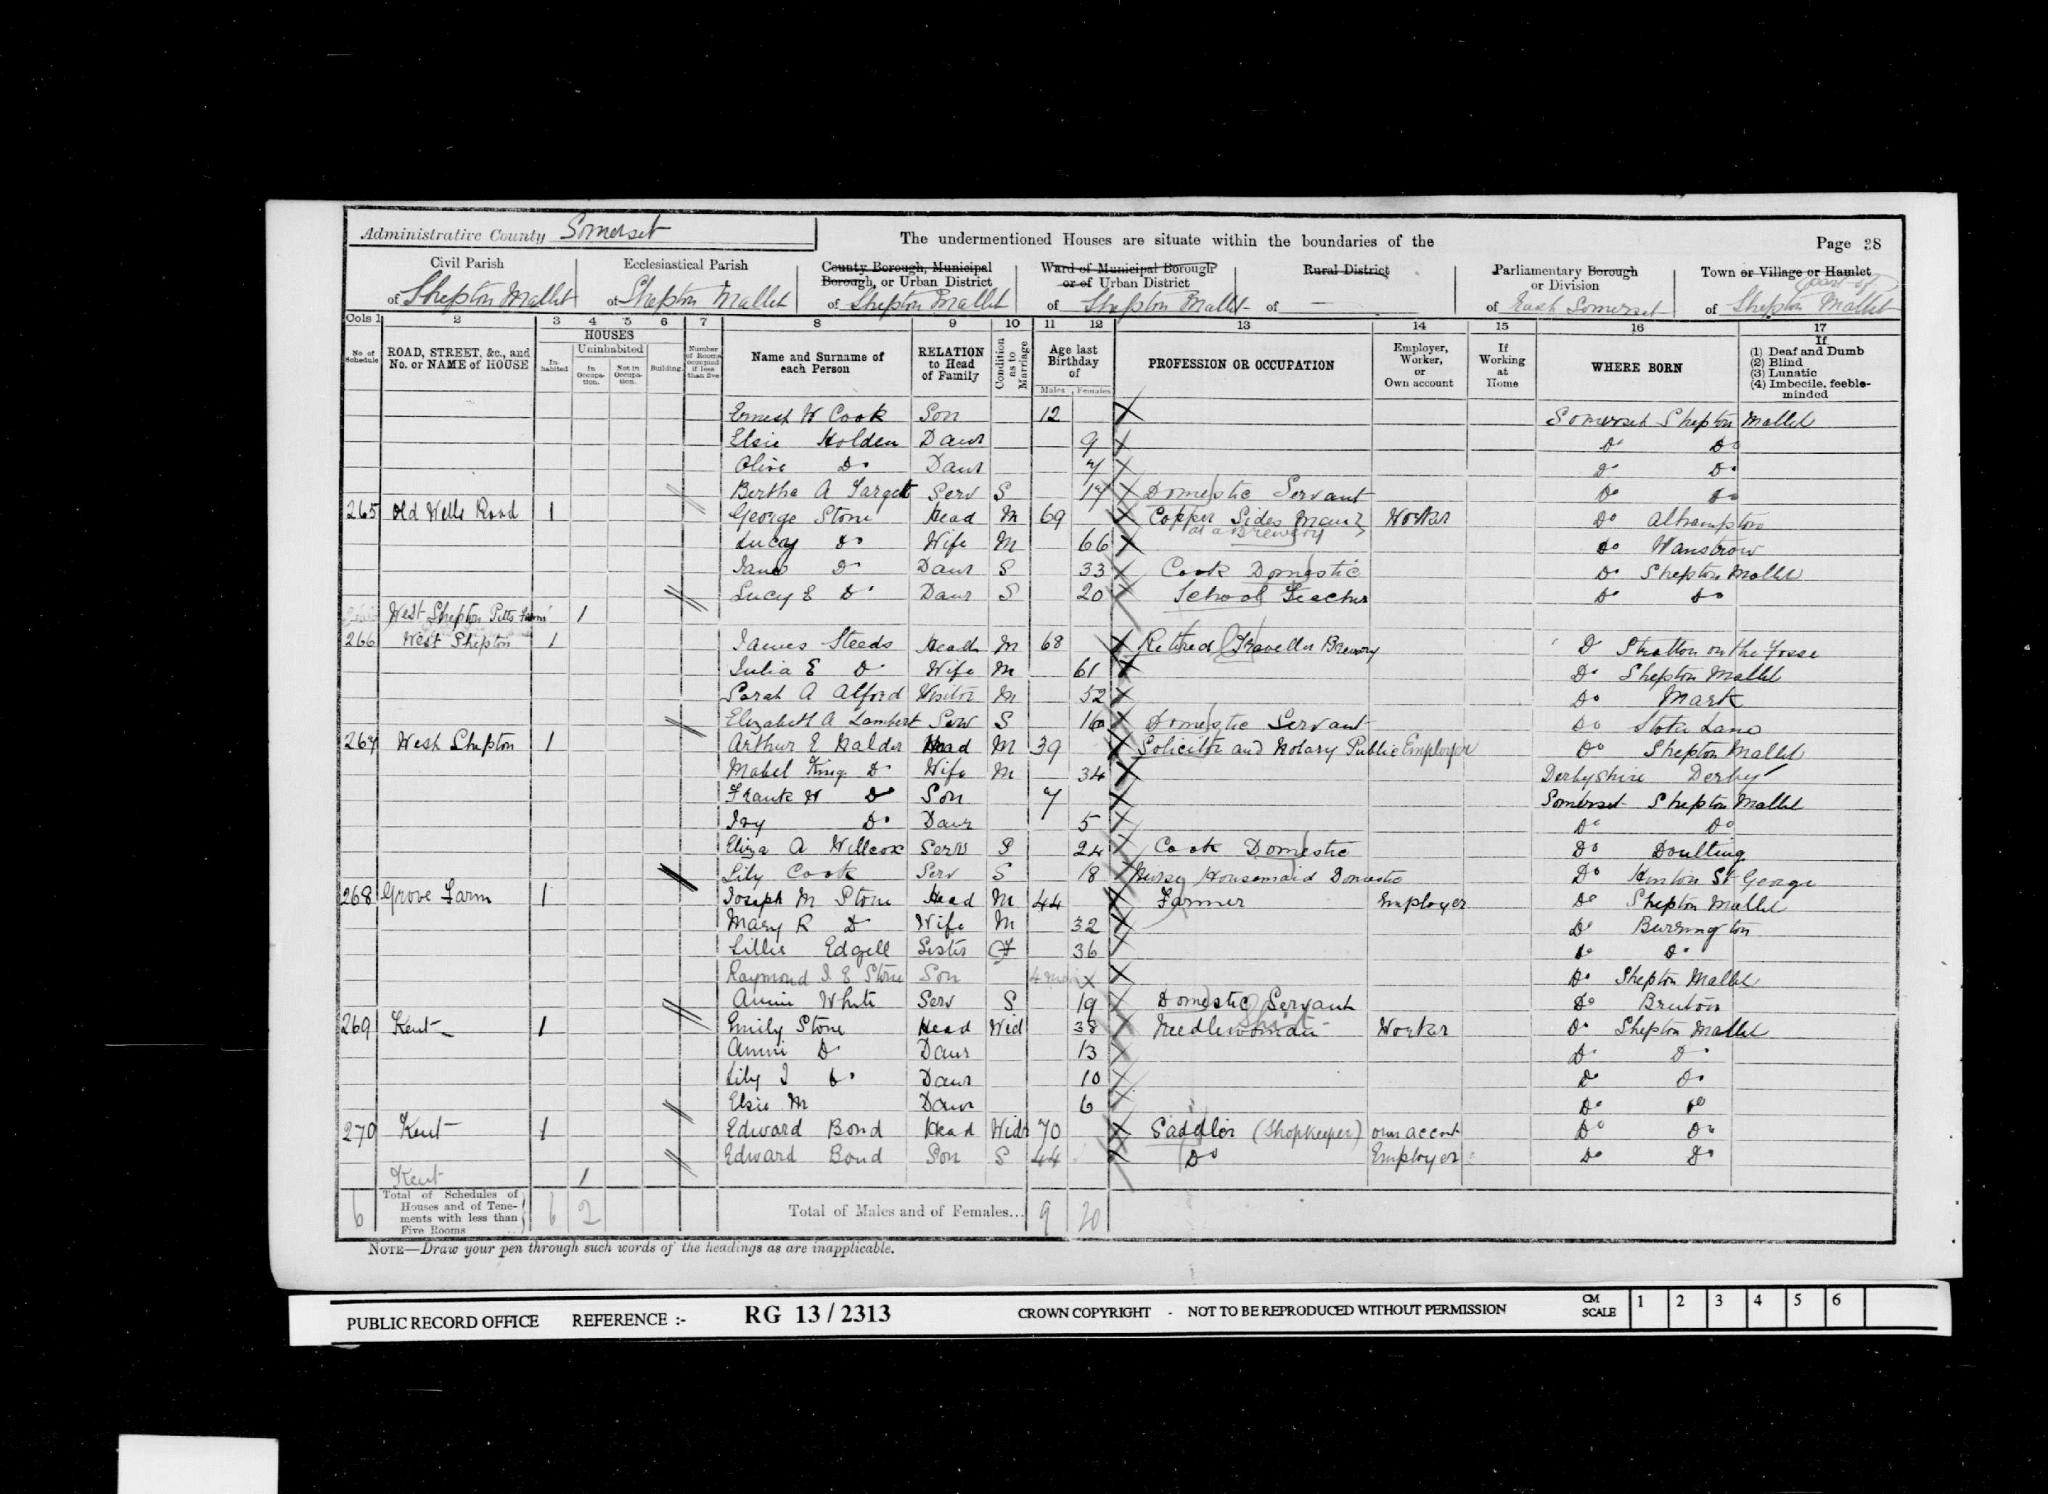 Administrative County Somerset
The undermentioned Houses are situate within the boundaries of the
Page 38
Civil Parish
of Shepton Mallet
Ecclesiastical Parish
of Shepton Mallet
County Borough, Municipal Borough, or Urban District
of Shepton Mallet
Ward of Municipal Borough or of Urban District
of Shepton Mallet
Rural District
of —
Parliamentary Borough or Division
of East Somerset
Town or Village or Hamlet
part of
of Shepton Mallet
Cols 1 2 3 4 5 6 7 8 9 10 11 12 13 14 15 16 17
No. of Schedule
ROAD, STREET, &c., and No. or NAME of HOUSE
HOUSES
In-habited
Uninhabited
In Occupa-tion.
Not in Occupa-tion.
Building.
Number of Rooms occupied if less than five
Name and Surname of each Person
RELATION to Head of Family
Condition as to Marriage
Age last Birthday of
Males Females
PROFESSION OR OCCUPATION
Employer, Worker, or Own account
If Working at Home
WHERE BORN
If
(1) Deaf and Dumb
(2) Blind
(3) Lunatic
(4) Imbecile, feeble-minded
Ernest W Cook Son 12 X Somerset Shepton Mallet
Elsie Holden Daur 9 X Do Do
Olive Do Daur 7 X Do Do
Bertha A Target Serv S 17 X Domestic Servant Do Do
265 Old Wells Road 1 George Stone Head M 69 X Copper Sides Man Worker Do Alhampton
at a Brewery
Lucy Do Wife M 66 X Do Wanstrow
Jane Do Daur S 33 X Cook Domestic Do Shepton Mallet
Lucy E Do Daur S 20 X School Teacher Do Do
West Shepton Pitts Farm 1
266 West Shepton 1 James Steeds Head M 68 X Retired Traveller Brewery Do Stratton on the Fosse
Julia E Do Wife M 61 X Do Shepton Mallet
Sarah A Alford Visitor M 52 X Do Mark
Elizabeth A Lambert Serv S 16 X Domestic Servant Do Stoke Lane
267 West Shepton 1 Arthur E Nalder Head M 39 X Solicitor and Notary Public Employer Do Shepton Mallet
Mabel King Do Wife M 34 X Derbyshire Derby
Frank W Do Son 7 X Somerset Shepton Mallet
Ivy Do Daur 5 X Do Do
Eliza A Willcox Serv S 24 X Cook Domestic Do Doulting
Lily Cook Serv S 18 X Nurse Housemaid Domestic Do Hinton St George
268 Grove Farm 1 Joseph M Stone Head M 44 X Farmer Employer Do Shepton Mallet
Mary R Do Wife M 32 X Do Burrington
Lillie Edgell Sister 36 X Do Do
Raymond J E Stone Son 4 mos X Do Shepton Mallet
Annie White Serv S 19 X Domestic Servant Do Bruton
269 Kent 1 Emily Stone Head Wid 38 X Needlewoman Worker Do Shepton Mallet
Annie Do Daur 13 X Do Do
Lily J Do Daur 10 X Do Do
Elsie M Daur 6 X Do Do
270 Kent 1 Edward Bond Head Widr 70 X Saddler (Shopkeeper) own accont Do Do
Edward Bond Son S 44 X Do Employer Do Do
Kent 1
6 Total of Schedules of Houses and of Tene-ments with less than Five Rooms 6 2
Total of Males and of Females... 9 20
NOTE—Draw your pen through such words of the headings as are inapplicable.
PUBLIC RECORD OFFICE REFERENCE :- RG 13 / 2313 CROWN COPYRIGHT - NOT TO BE REPRODUCED WITHOUT PERMISSION
CM SCALE 1 2 3 4 5 6